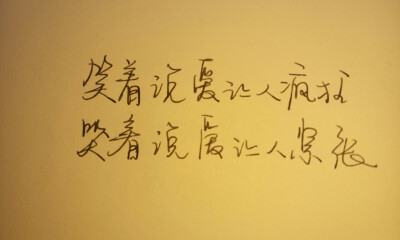 笑着说爱让人疯狂
哭着说爱让人紧张